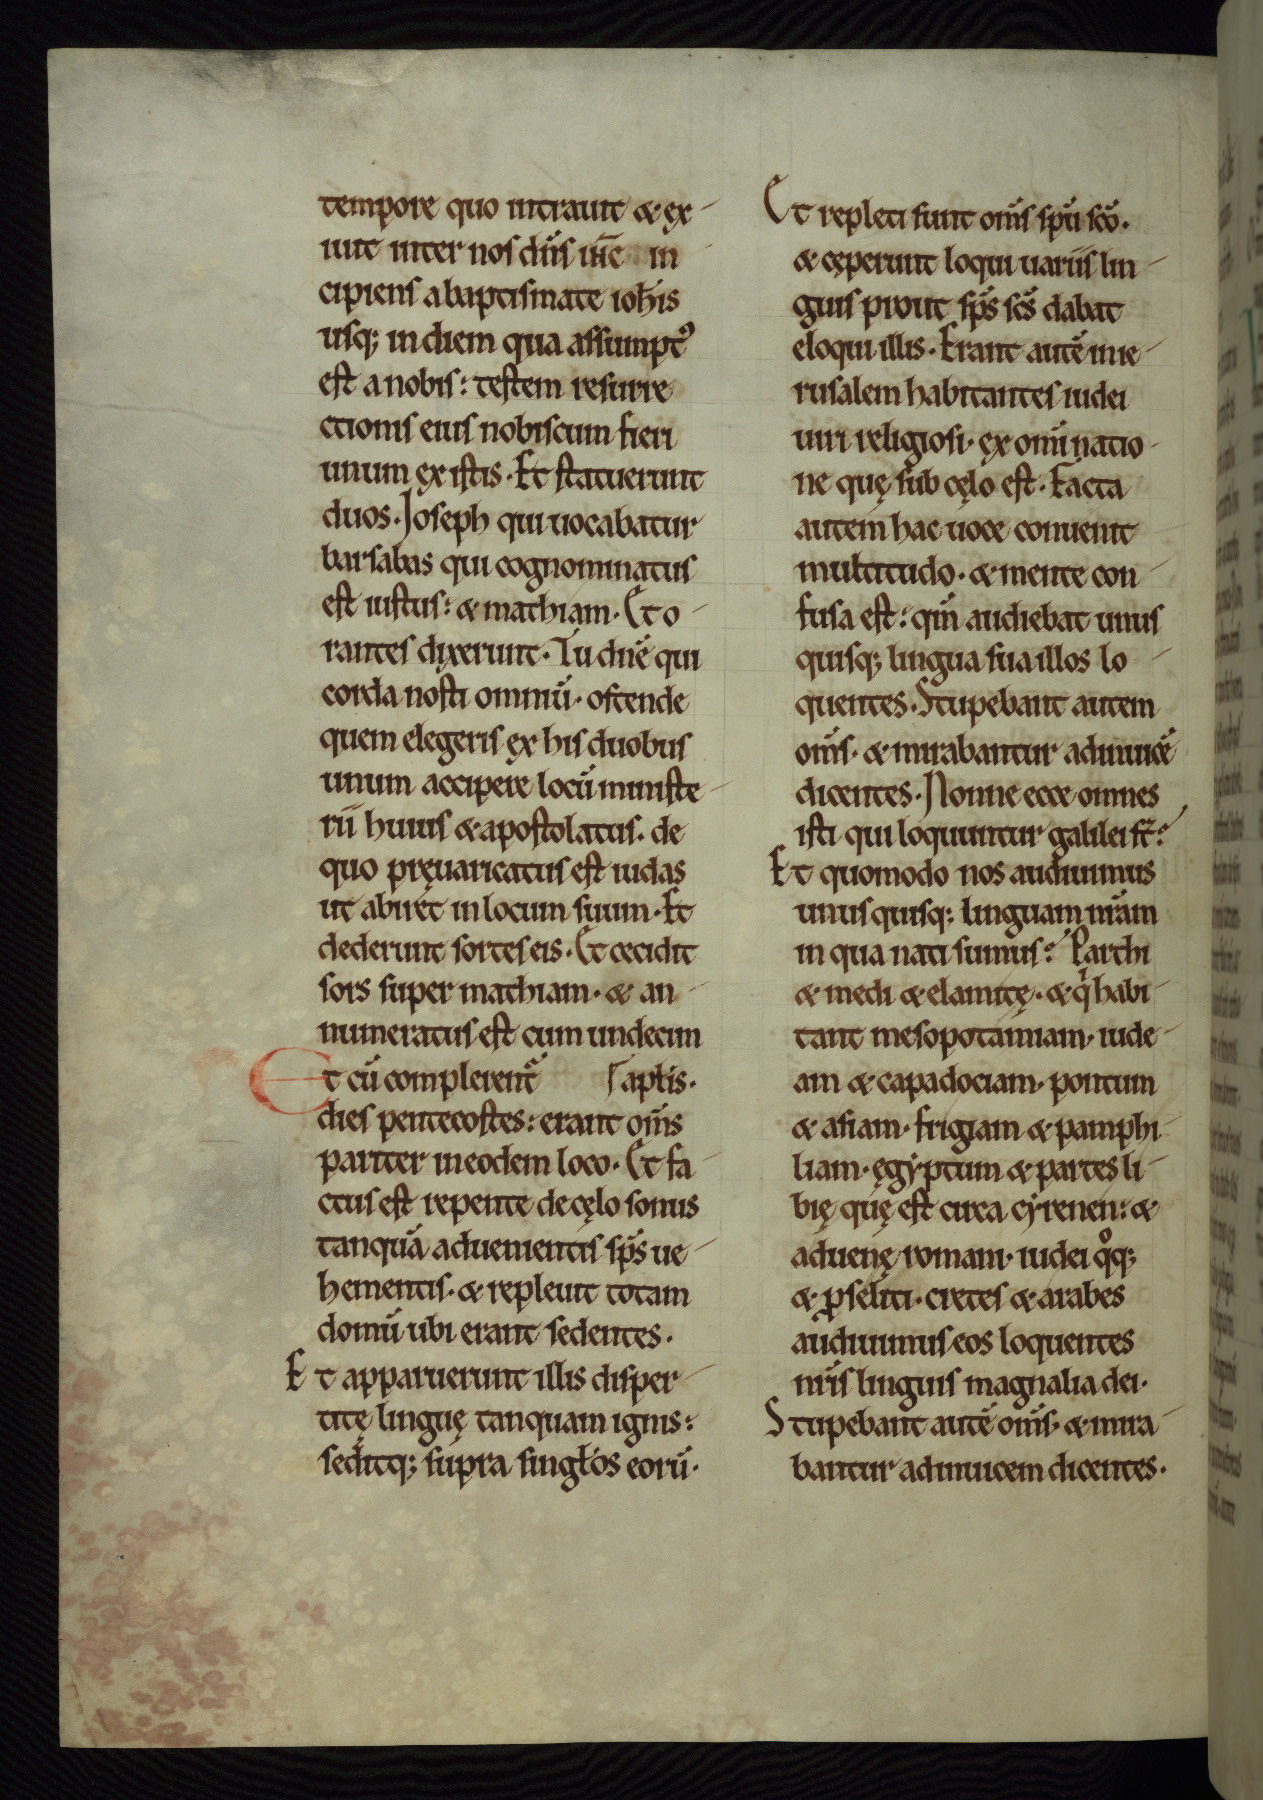 tempore quo intrauit & ex
iuit inter nos dn̄s ihc̄ in
cipiens a baptismate ioh̄is
usq; in diem qua assumpt᾽
est a nobis: testem resurre
ctionis eius nobiscum fieri
unum ex istis. Et statuerunt
duos. Joseph qui uocabatur
barsabas qui cognominatus
est iustus: & mathiam. Et o
rantes dixerunt. Tu dn̄e qui
corda nosti omniū. ostende
quem elegeris ex his duobus
unum accipere locū ministe
rii huius & apostolatus. de
quo pręuaricatus est iudas
ut abiret in locum suum. Et
dederunt sortes eis. Et cecidit
sors super mathiam. & an
numeratus est cum undecim
Et cū complerent᷑ aplis.
dies pentecostes: erant om̄s
pariter in eodem loco. Et fa
ctus est repente de cęlo sonus
tanquā aduenientis sp̄s ue
hementis. & repleuit totam
domū ubi erant sedentes.
Et apparuerunt illis disper
titę linguę tanquam ignis:
seditq; supra singłos eorū.
Et repleti sunt om̄s sp̄u sc̄o.
& cęperunt loqui uariis lin
guis prout sp̄s sc̄s dabat
eloqui illis. Erant autē in ie
rusalem habitantes iudei
uiri religiosi. ex om̄i natio
ne quę sub cęlo est. Facta
autem hac uoce conuenit
multitudo. & mente con
fusa est: qm̄ audiebat unus
quisq; lingua sua illos lo
quentes. Stupebant autem
om̄s. & mirabantur adinuicē
dicentes. Nonne ecce omnes
isti qui loquuntur galilei st̄?
Et quomodo nos audiuimus
unusquisq; linguam nr̄am
in qua nati sumus? Parthi
& medi & elamitę. & qͥ habi
tant mesopotamiam, iude
am & capadociam. pontum
& asiam. frigiam & pamphi
liam. ęgyptum & partes li
bię quę est circa cyrenen: &
aduenę romani. iudei qͦq;
& p̱seliti. cretes & arabes
audiuimus eos loquentes
nr̄is linguis magnalia dei.
Stupebant autē om̄s. & mira
bantur adinuicem dicentes.